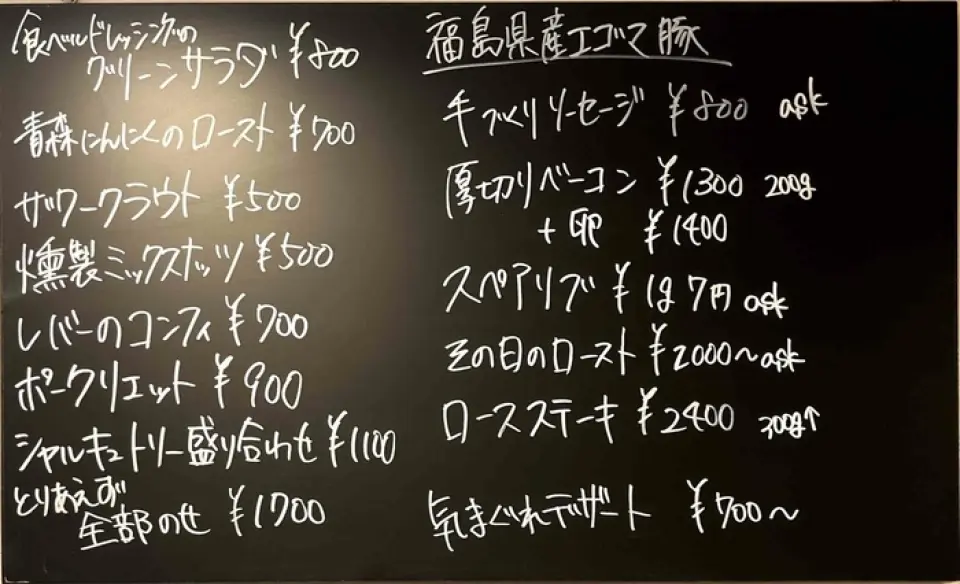 食べるドレッシングの
グリーンサラダ ¥800
青森にんにくのロースト ¥700
ザワークラウト ¥500
燻製ミックスナッツ ¥500
レバーのコンフィ ¥700
ポークリエット ¥900
シャルキュトリー盛り合わせ ¥1100
とりあえず
全部のせ ¥1700
福島県産エゴマ豚
手づくりソーセージ ¥800 ask
厚切りベーコン ¥1300 200g
+卵 ¥1400
スペアリブ ¥1g 7円 ask
その日のロースト ¥2000〜ask
ロースステーキ ¥2400 300g↑
気まぐれデザート ¥700〜